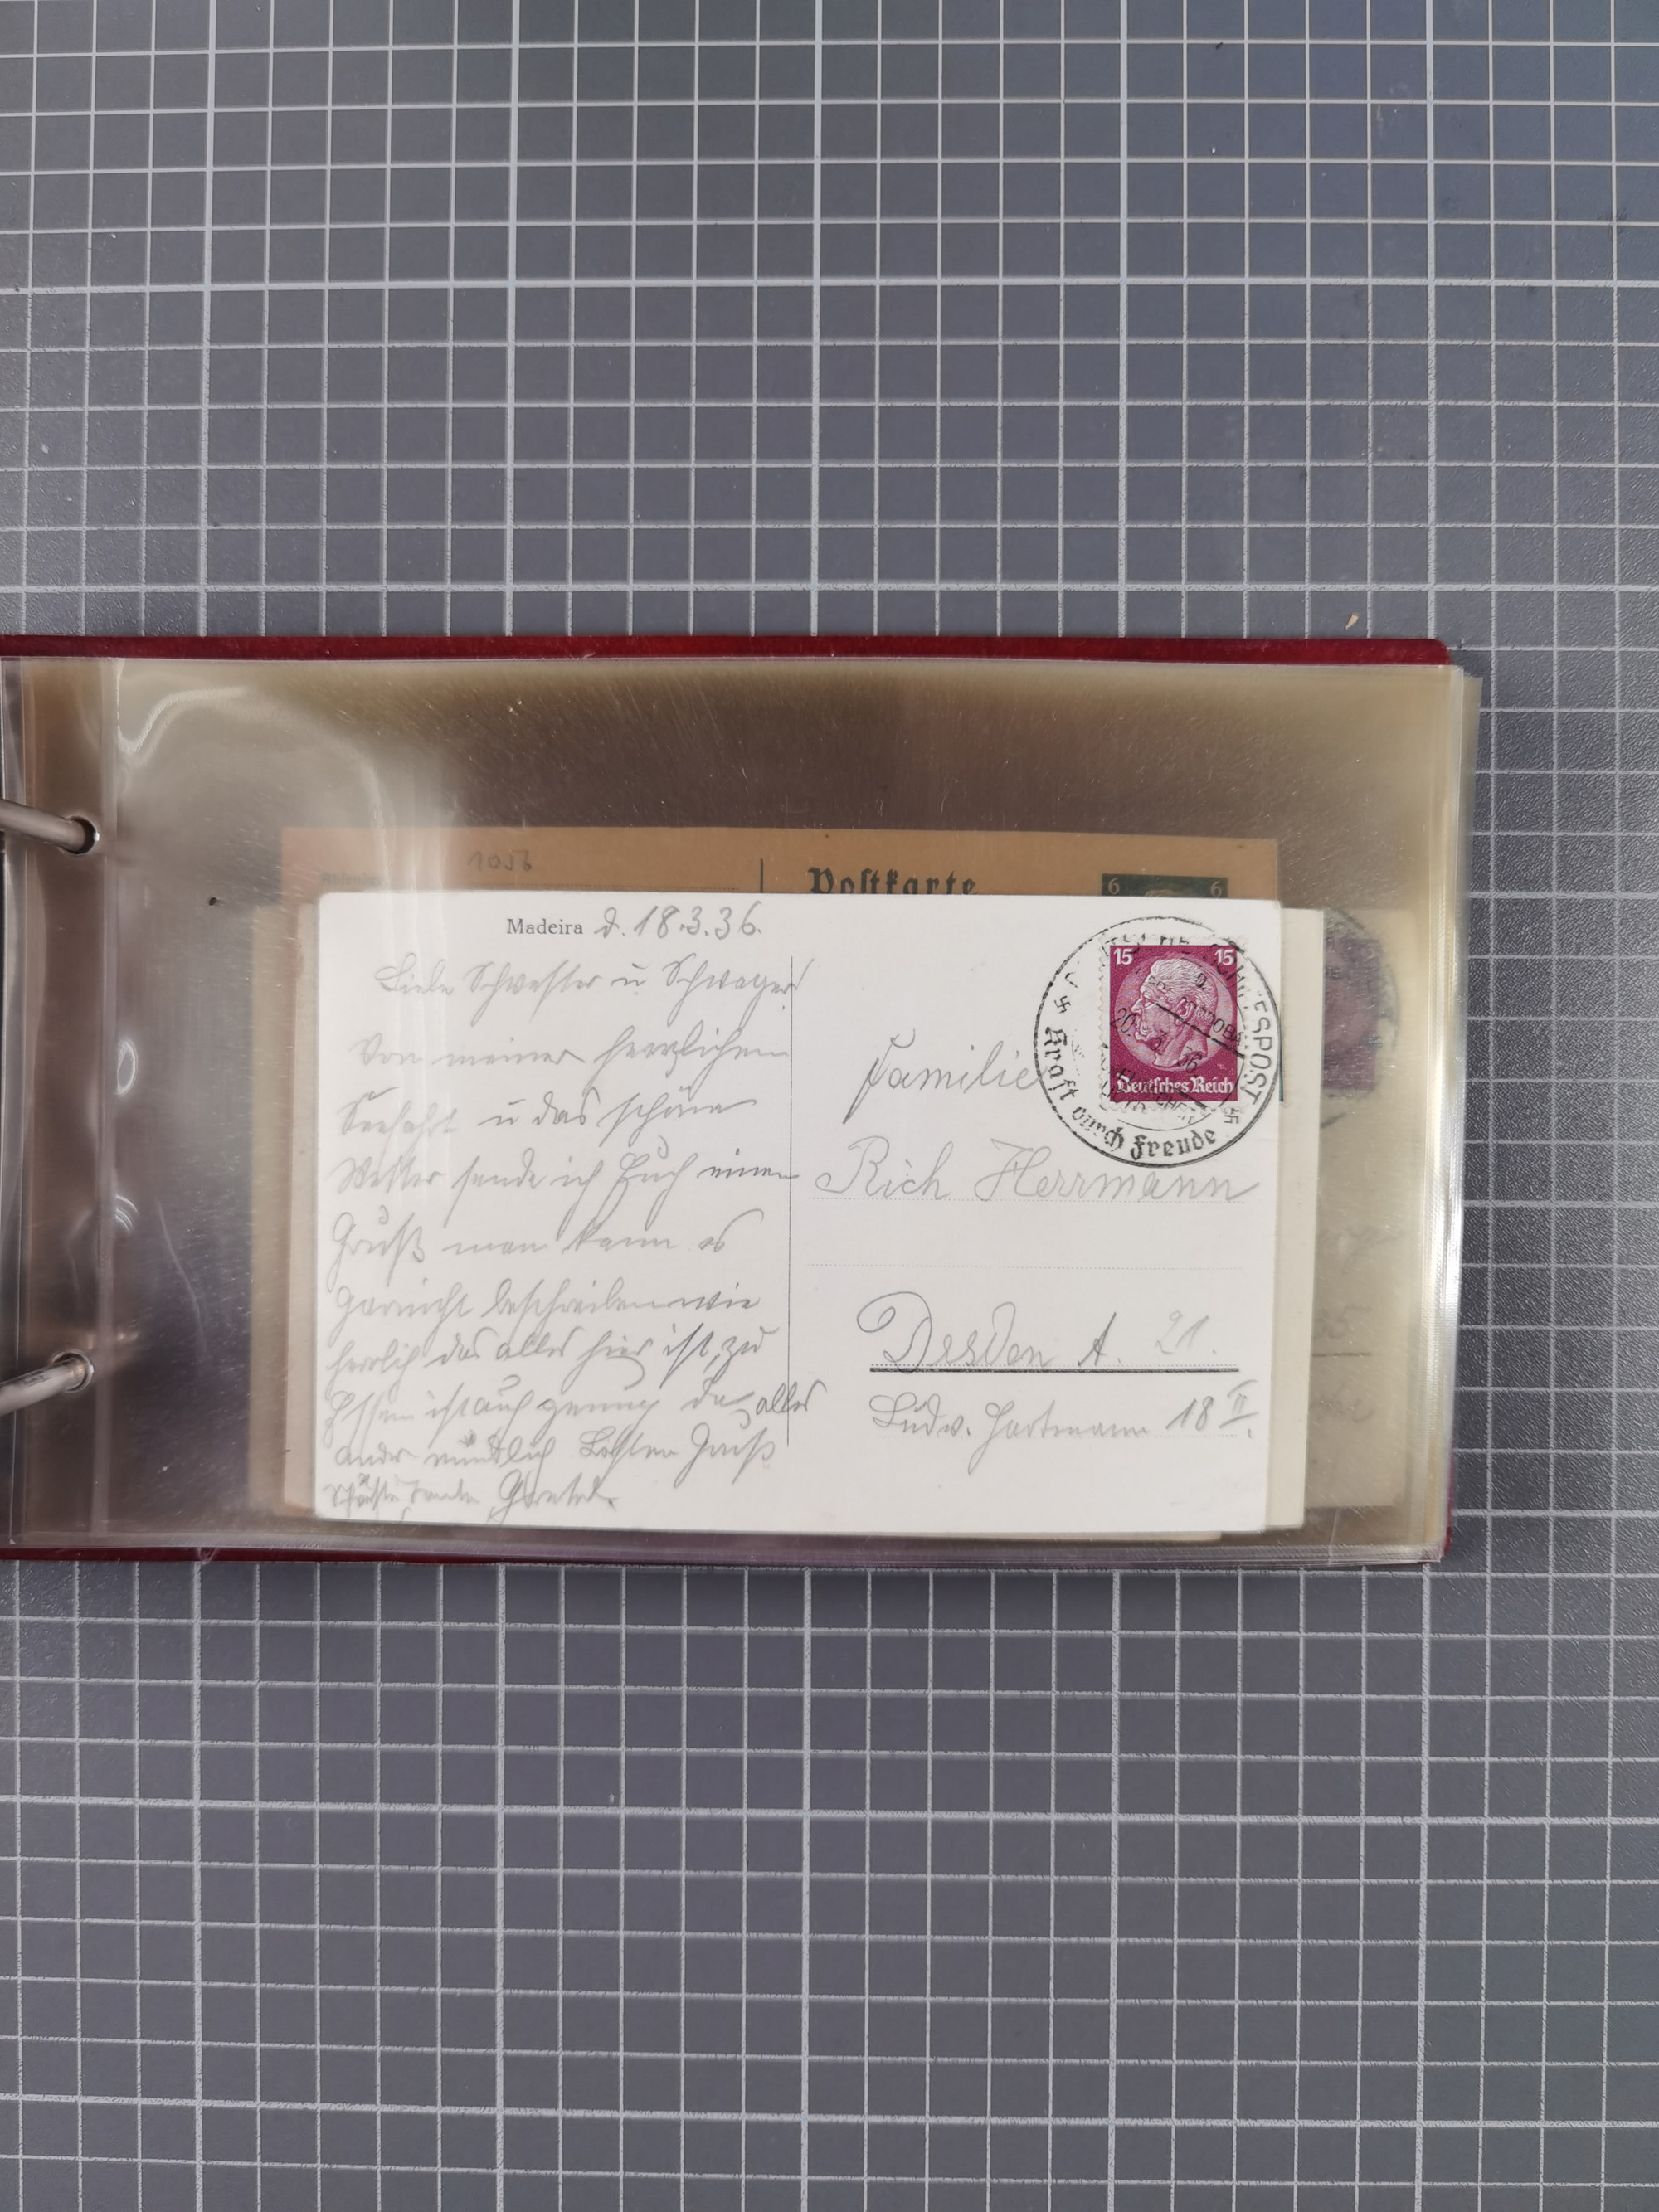 1056
Postkarte
6 6
Madeira d. 18.3.36.
Liebe Schwester u Schwager!
Von meiner herrlichen
Seefahrt u das schöne
Wetter sende ich Euch einen
Gruß man kann es
garnicht beschreiben wie
herrlich das alles hier ist, zu
Essen ist auch genug da, alles
ander mündlich. Besten Gruß
Gretel.
15 15
Deutsches Reich
SCHIFFSPOST
Kraft durch Freude
Familie
Rich Herrmann
Dresden A. 21.
Ludw. Hartmann 18 II.